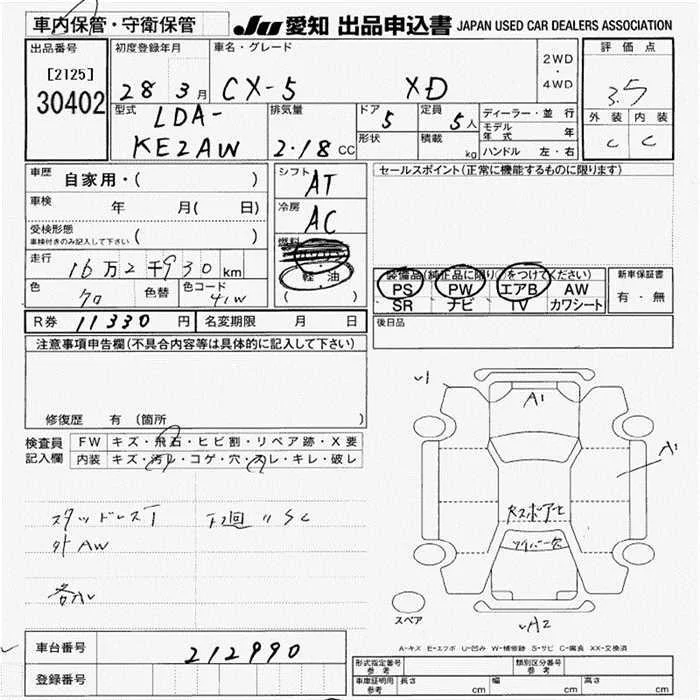 車内保管・守衛保管
JU 愛知 出品申込書 JAPAN USED CAR DEALERS ASSOCIATION
出品番号
[2125]
30402
初度登録年月
28 3月
車名・グレード
CX-5 XD
2WD
・
4WD
評価点
3.5
外装 内装
C C
型式
LDA-
KE2AW
排気量
2.18cc
ドア
5
定員
5人
形状
積載
kg
ディーラー・並行
モデル年式 年
ハンドル 左・右
車歴
自家用・( )
車検
年 月( 日)
受検形態
車検付きのみ記入して下さい ( )
走行
16万2千930km
色
クロ
色替
色コード
41W
シフト
AT
冷房
AC
燃料
軽油
( )
セールスポイント(正常に機能するものに限ります)
装備品(純正品に限り○をつけてください)
PS PW エアB AW
SR ナビ TV カワシート
新車保証書
有・無
R券 11330円
名変期限 月 日
後日品
注意事項申告欄(不具合内容等は具体的に記入して下さい)
修復歴 有 (箇所 )
検査員
記入欄
FW キズ・飛石・ヒビ割・リペア跡・X要
内装 キズ・汚レ・コゲ・穴・スレ・キレ・破レ
スタッドレスT 下廻リSC
外AW
√1
A1
A1
スペア
√A2
A-キズ E-エクボ U-凹み W-補修跡 S-サビ C-腐食 XX-交換済
車台番号
212990
登録番号
形式指定番号
参考
類別区分番号
参考
車庫証明用
参考
長さ cm
幅 cm
高さ cm